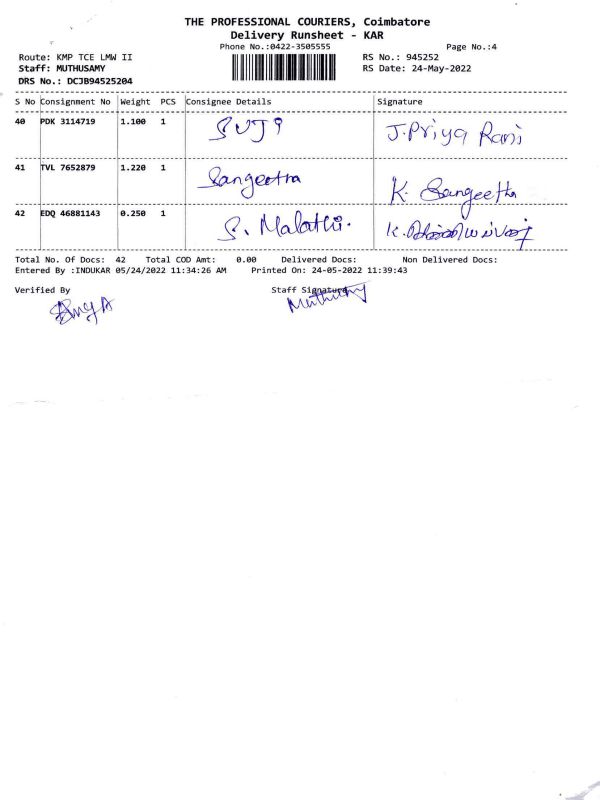 THE PROFESSIONAL COURIERS, Coimbatore
Delivery Runsheet - KAR
Phone No.:0422-3505555
Page No.:4
Route: KMP TCE LMW II
RS No.: 945252
Staff: MUTHUSAMY
RS Date: 24-May-2022
DRS No.: DCJB94525204
S No Consignment No Weight PCS Consignee Details Signature
40 PDK 3114719 1.100 1 SUJI J.Priya Rani
41 TVL 7652879 1.220 1 Sangeetha K. Sangeetha
42 EDQ 46881143 0.250 1 S. Malathi. K.
Total No. Of Docs: 42 Total COD Amt: 0.00 Delivered Docs: Non Delivered Docs:
Entered By :INDUKAR 05/24/2022 11:34:26 AM Printed On: 24-05-2022 11:39:43
Verified By Staff Signature
Muthusamy